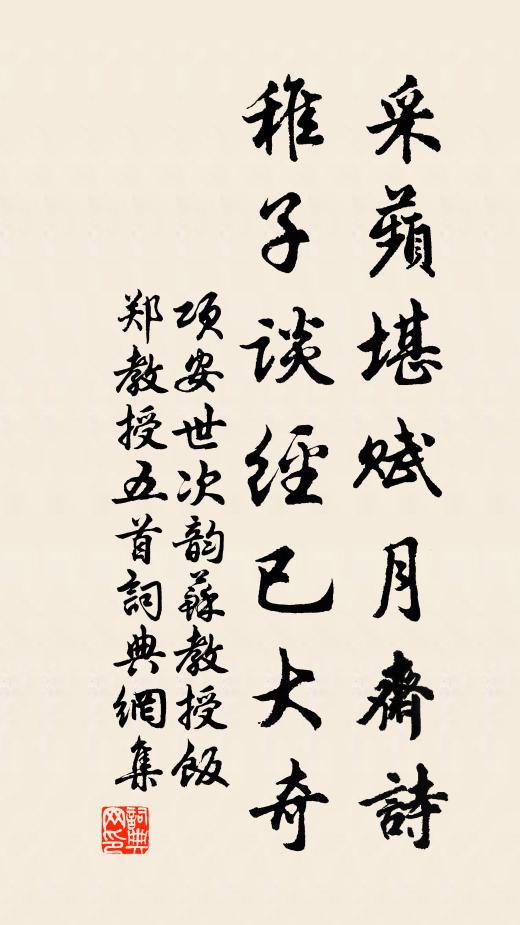 采蘋堪赋月齋詩
稚子談經已大奇
项安世次韵蘇教授飯
郑教授五首詞典網集
詞典
网印